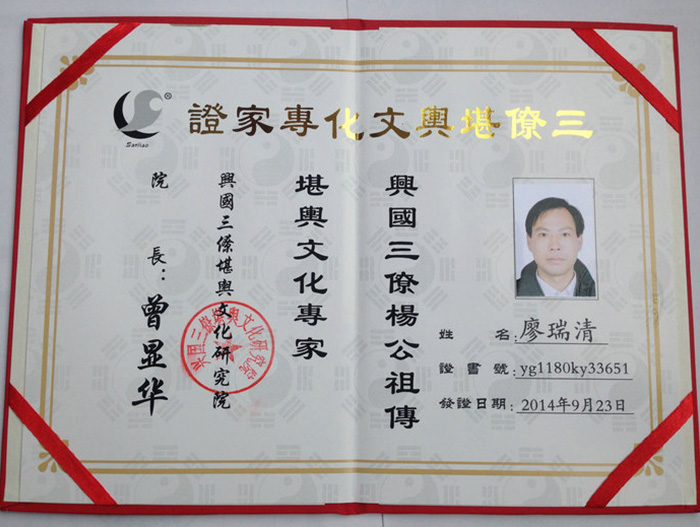 三僚堪輿文化專家證
®
Sanliao
興國三僚楊公祖傳
堪輿文化專家
興國三僚堪輿文化研究院
院 長：曾显华
兴国三僚堪舆文化研究院
姓 名：廖瑞清
證 書 號：yg1180ky33651
發證日期：2014年9月23日